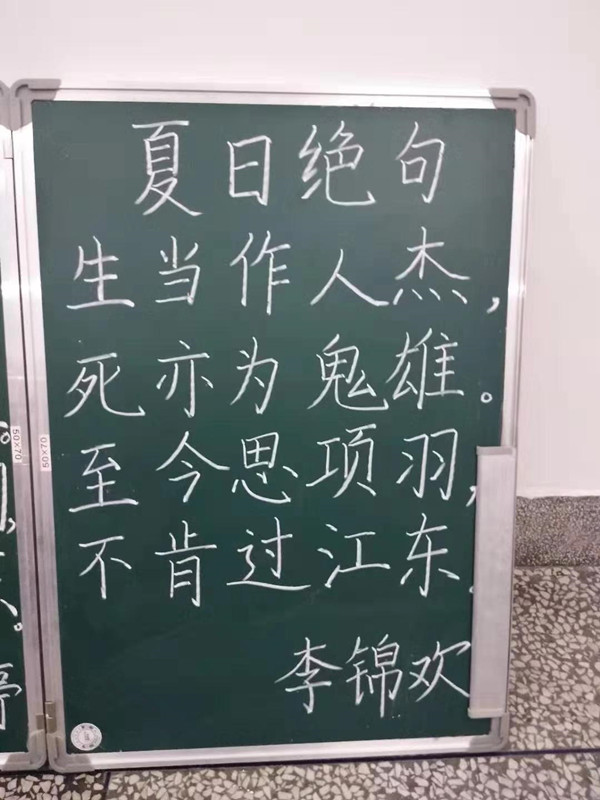 夏日绝句
生当作人杰，
死亦为鬼雄。
至今思项羽，
不肯过江东.
李锦欢
50×70
50×70